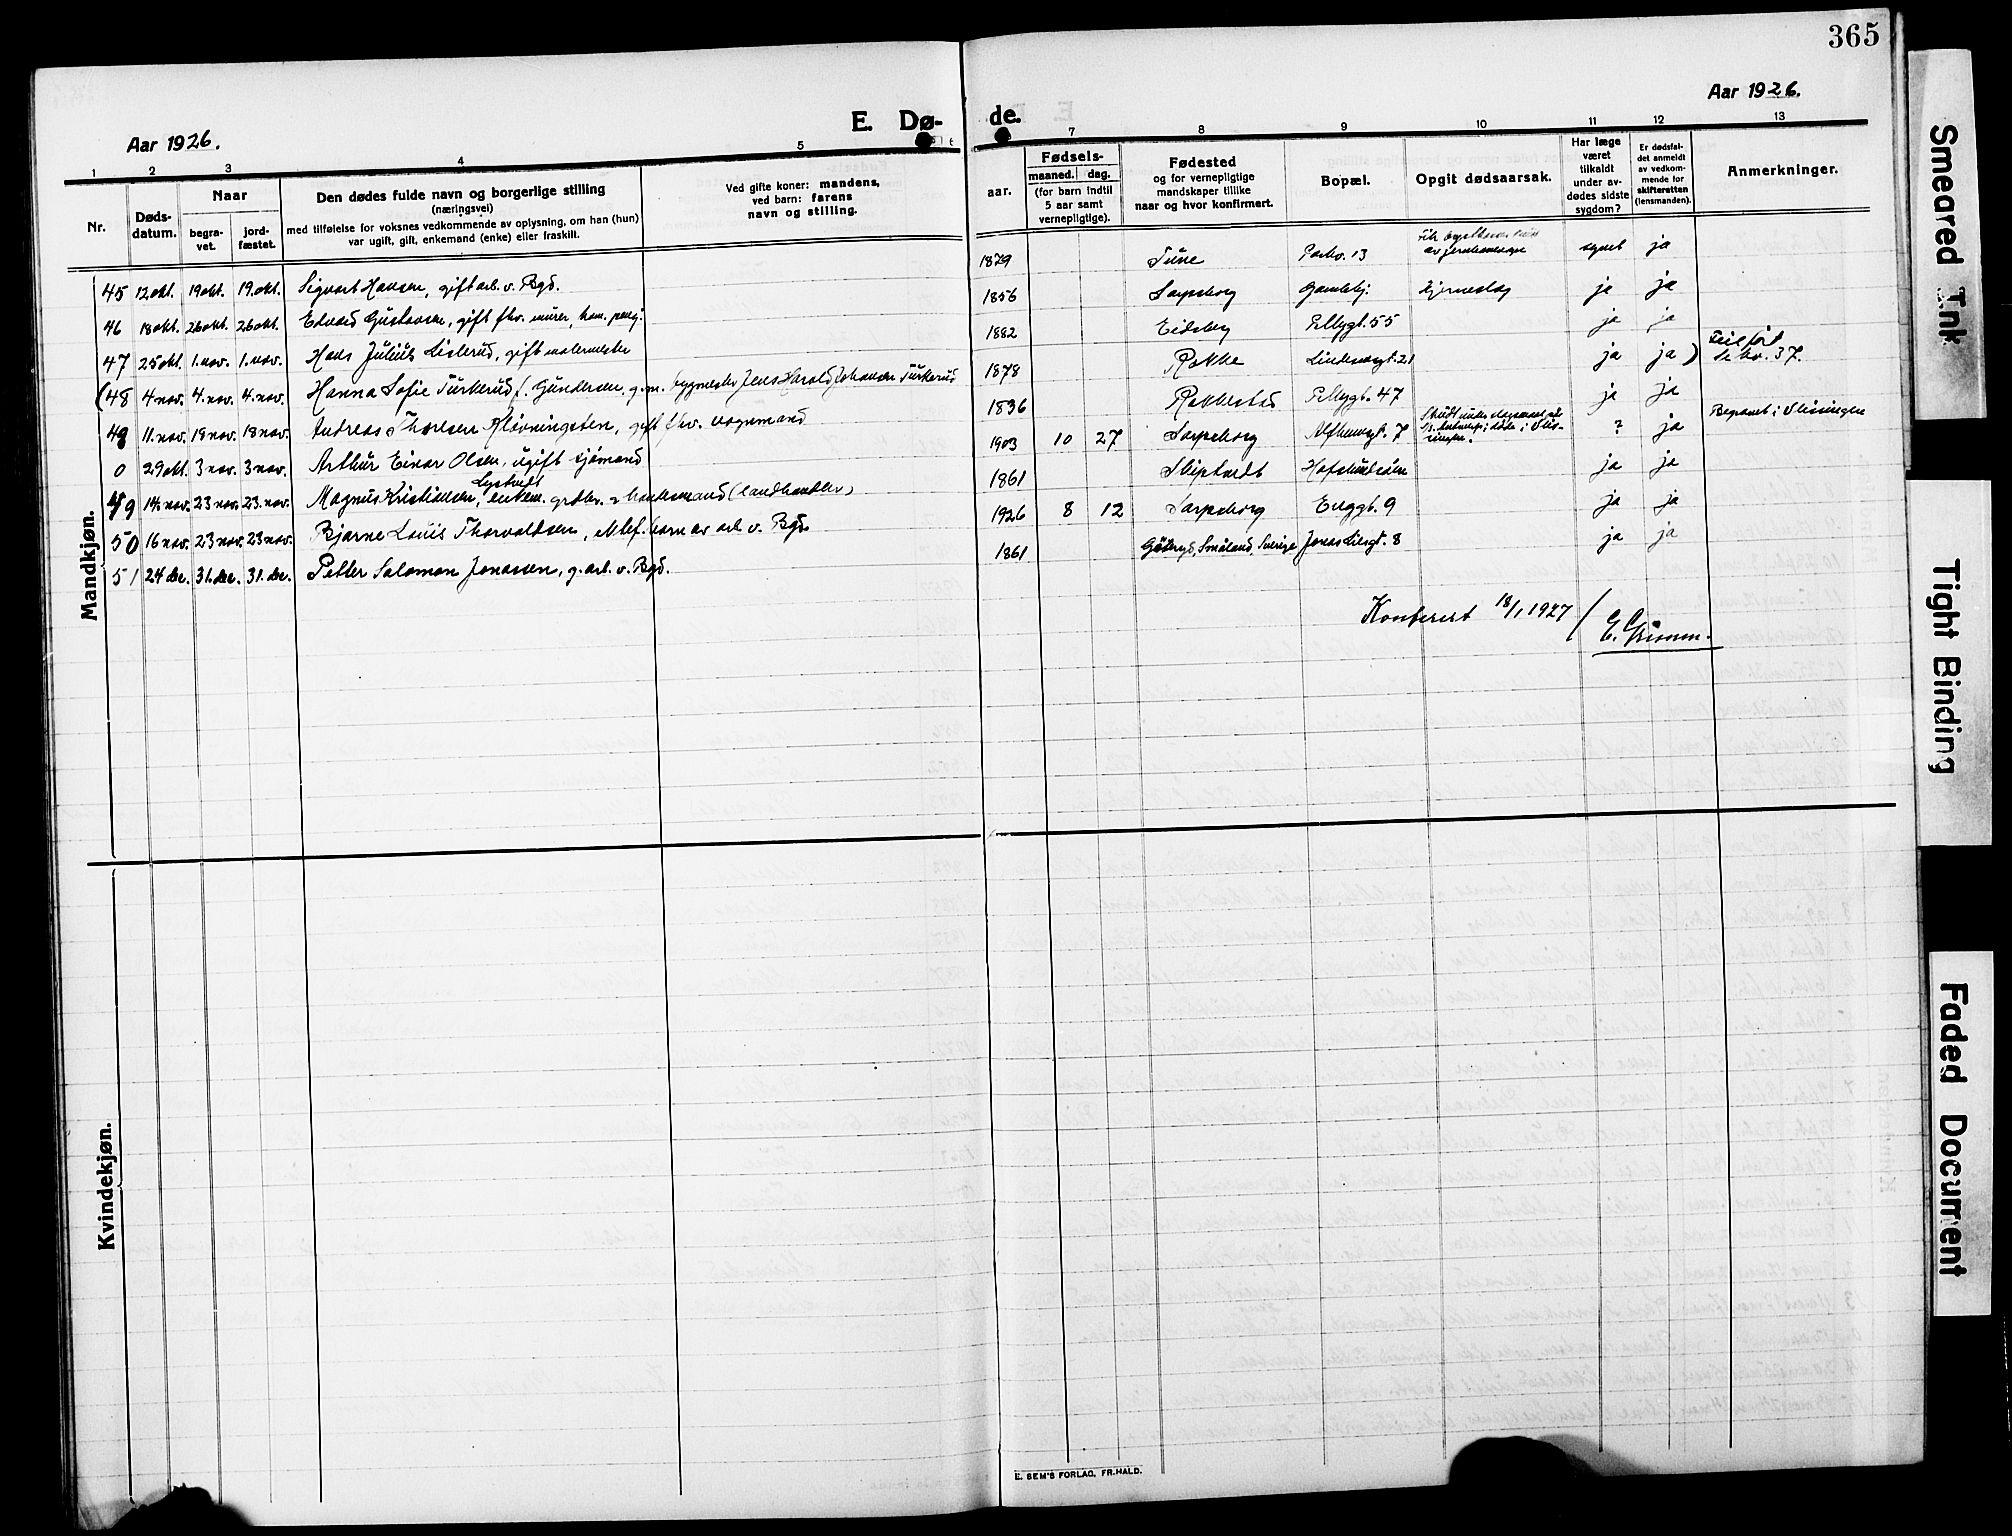 365
Aar 1926.
Aar 1926.
E. Dø- de.
1 2 3 4 5 6 7 8 9 10 11 12 13
Nr.
Døds-
datum.
Naar
begra-
vet.
jord-
fæstet.
Den dødes fulde navn og borgerlige stilling
(næringsvei)
med tilføielse for voksnes vedkommende av oplysning, om han (hun)
var ugift, gift, enkemand (enke) eller fraskilt.
Ved gifte koner: mandens,
ved barn: farens
navn og stilling.
aar.
Fødsels-
maaned. dag.
(for barn indtil
5 aar samt
vernepligtige).
Fødested
og for vernepligtige
mandskaper tillike
naar og hvor konfirmert.
Bopæl.
Opgit dødsaarsak.
Har læge
været
tilkaldt
under av-
dødes sidste
sygdom?
Er dødsfal-
det anmeldt
av vedkom-
mende for
skifteretten
(lensmanden).
Anmerkninger.
Mandkjøn.
45 12 okt. 19 okt. 19. okt. Sigvart Hansen, gift arb. v. Bgd. 1879 Tune 13 synet ja
46 18 okt. 26 okt. 26 okt. Edvard Gustavsen, gift fhv. murer, kom. peng. 1856 Sarpsborg Gamlebj. hjerneslag ja ja
47 25 okt. 1. nov. 1. nov. Hans Julius Lislerud, gift malermester 1882 Eidsberg Pellygt. 55 ja ja
(48 4 nov. 4. nov. 4. nov. Hanna Sofie Turkerud f. Gundersen. g. m. bygmester Jens Harald Johansen Turkerud 1878 Rokke 21 ja ja ) Feilført
Se kv. 37.
48 11. nov. 18 nov. 18 nov. Andreas Thoresen Kløvningsten, gift fhv. vognmand 1836 Rakkestad Pellygt. 47 ja ja
0 29 okt. 3 nov. 3 nov. Arthur Einar Olsen, ugift sjömand 1903 10 27 Sarpsborg 7 ? ja Begravet i Vlissingen
49 14. nov. 23 nov. 23. nov. Magnus Kristiansen Lystvedt, enkem. grdbr. & handelsmand (landhandler) 1861 Skiptvedt Hafslundsöen ja ja
50 16 nov. 23 nov. 23 nov. Bjarne Louis Thorvaldsen, barn av arb. v. Bgd. 1926 8 12 Sarpsborg Enggt. 9 ja ja
51 24 de. 31. de. 31. de. Petter Salomon Jonassen, g. arb. v. Bgd. 1861 Göteryd, Småland, Sverige Jonas Liesgt. 8 ja ja
Konferert 18/1 1927 / E. Grimm.
Kvindekjøn.
E. SEM'S FORLAG, FR.HALD.
Smeared Ink
Tight Binding
Faded Document